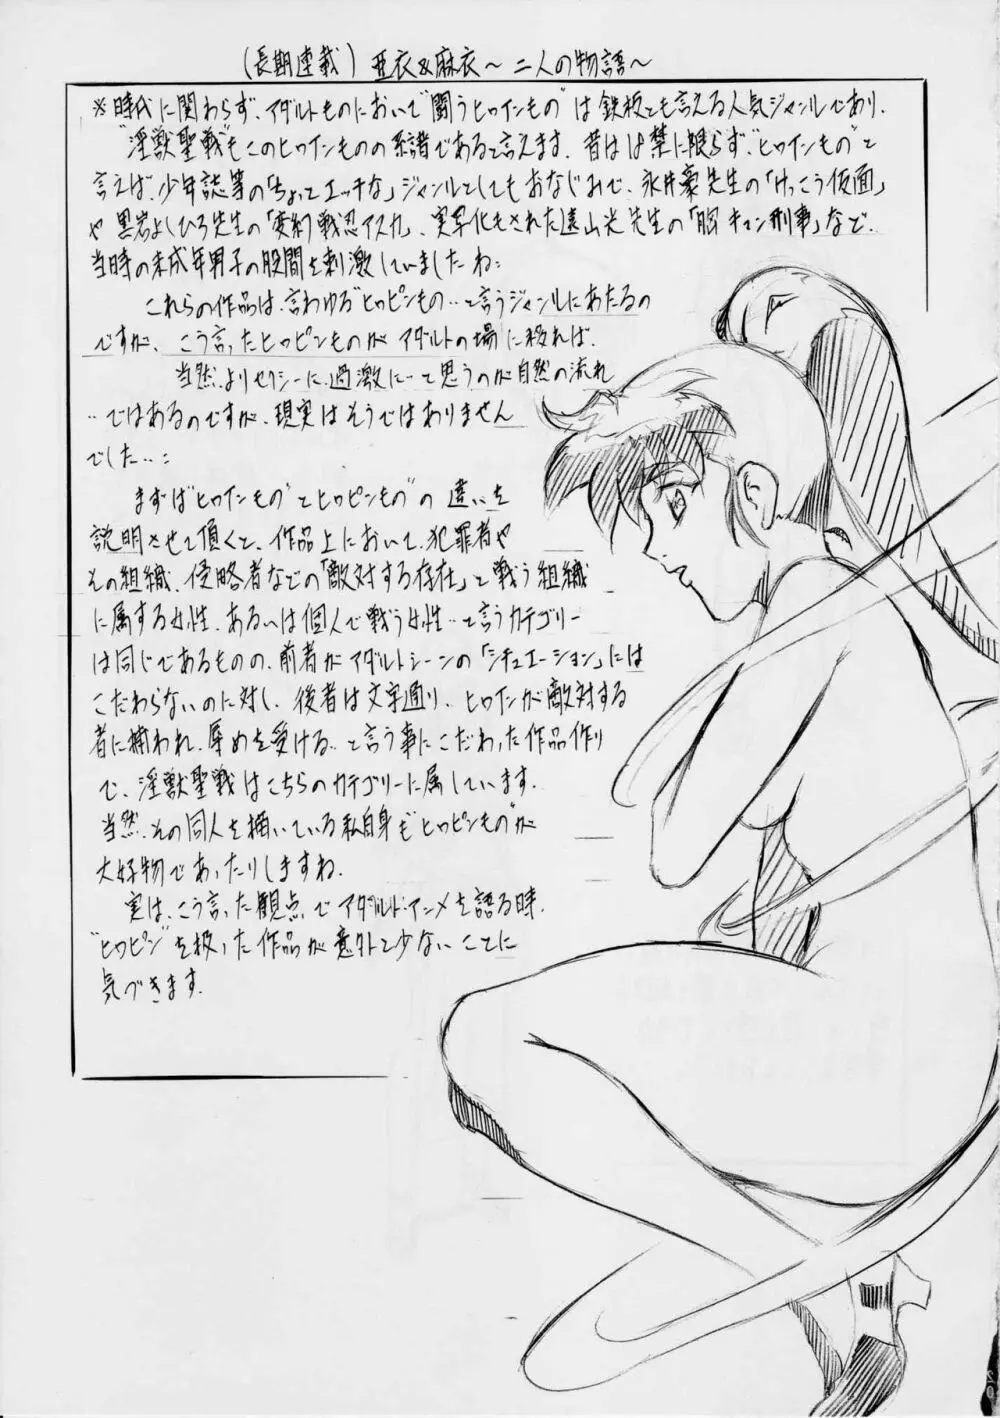 (長期連載) 亜衣&麻衣〜二人の物語〜
※時代に関わらず、アダルトものにおいて"闘うヒロインもの"は鉄板とも言える人気ジャンルであり、
"淫獣聖戦"もこのヒロインものの系譜であると言えます。昔は18禁に限らず、"ヒロインもの"と
言えば、少年誌等の「ちょっとエッチな」ジャンルとしてもおなじみで、永井豪先生の「けっこう仮面」
や黒岩よしひろ先生の「変幻戦忍アスカ」、実写化もされた遠山光先生の「胸キュン刑事」など、
当時の未成年男子の股間を刺激していましたね…
これらの作品は、言わゆる"ヒロピンもの"…と言うジャンルにあたるの
ですが、こう言ったヒロピンものがアダルトの場に移れば、
当然、よりセクシーに、過激に…と思うのが自然の流れ
…ではあるのですが、現実はそうではありません
でした…:
まずは"ヒロインもの"と"ヒロピンもの"の違いを
説明させて頂くと、作品上において、犯罪者や
その組織、侵略者などの「敵対する存在」と戦う組織
に属する女性、あるいは個人で戦う女性…と言うカテゴリー
は同じであるものの、前者がアダルトシーンの「シチュエーション」には
こだわらないのに対し、後者は文字通り、ヒロインが敵対する
者に捕われ、辱めを受ける…と言う事にこだわった作品作り
で、淫獣聖戦はこちらのカテゴリーに属しています。
当然、その同人を描いている私自身も"ヒロピンもの"が
大好物であったりしますね。
実は、こう言った観点でアダルト・アニメを語る時、
"ヒロピン"を扱った作品が意外と少ないことに
気づきます。